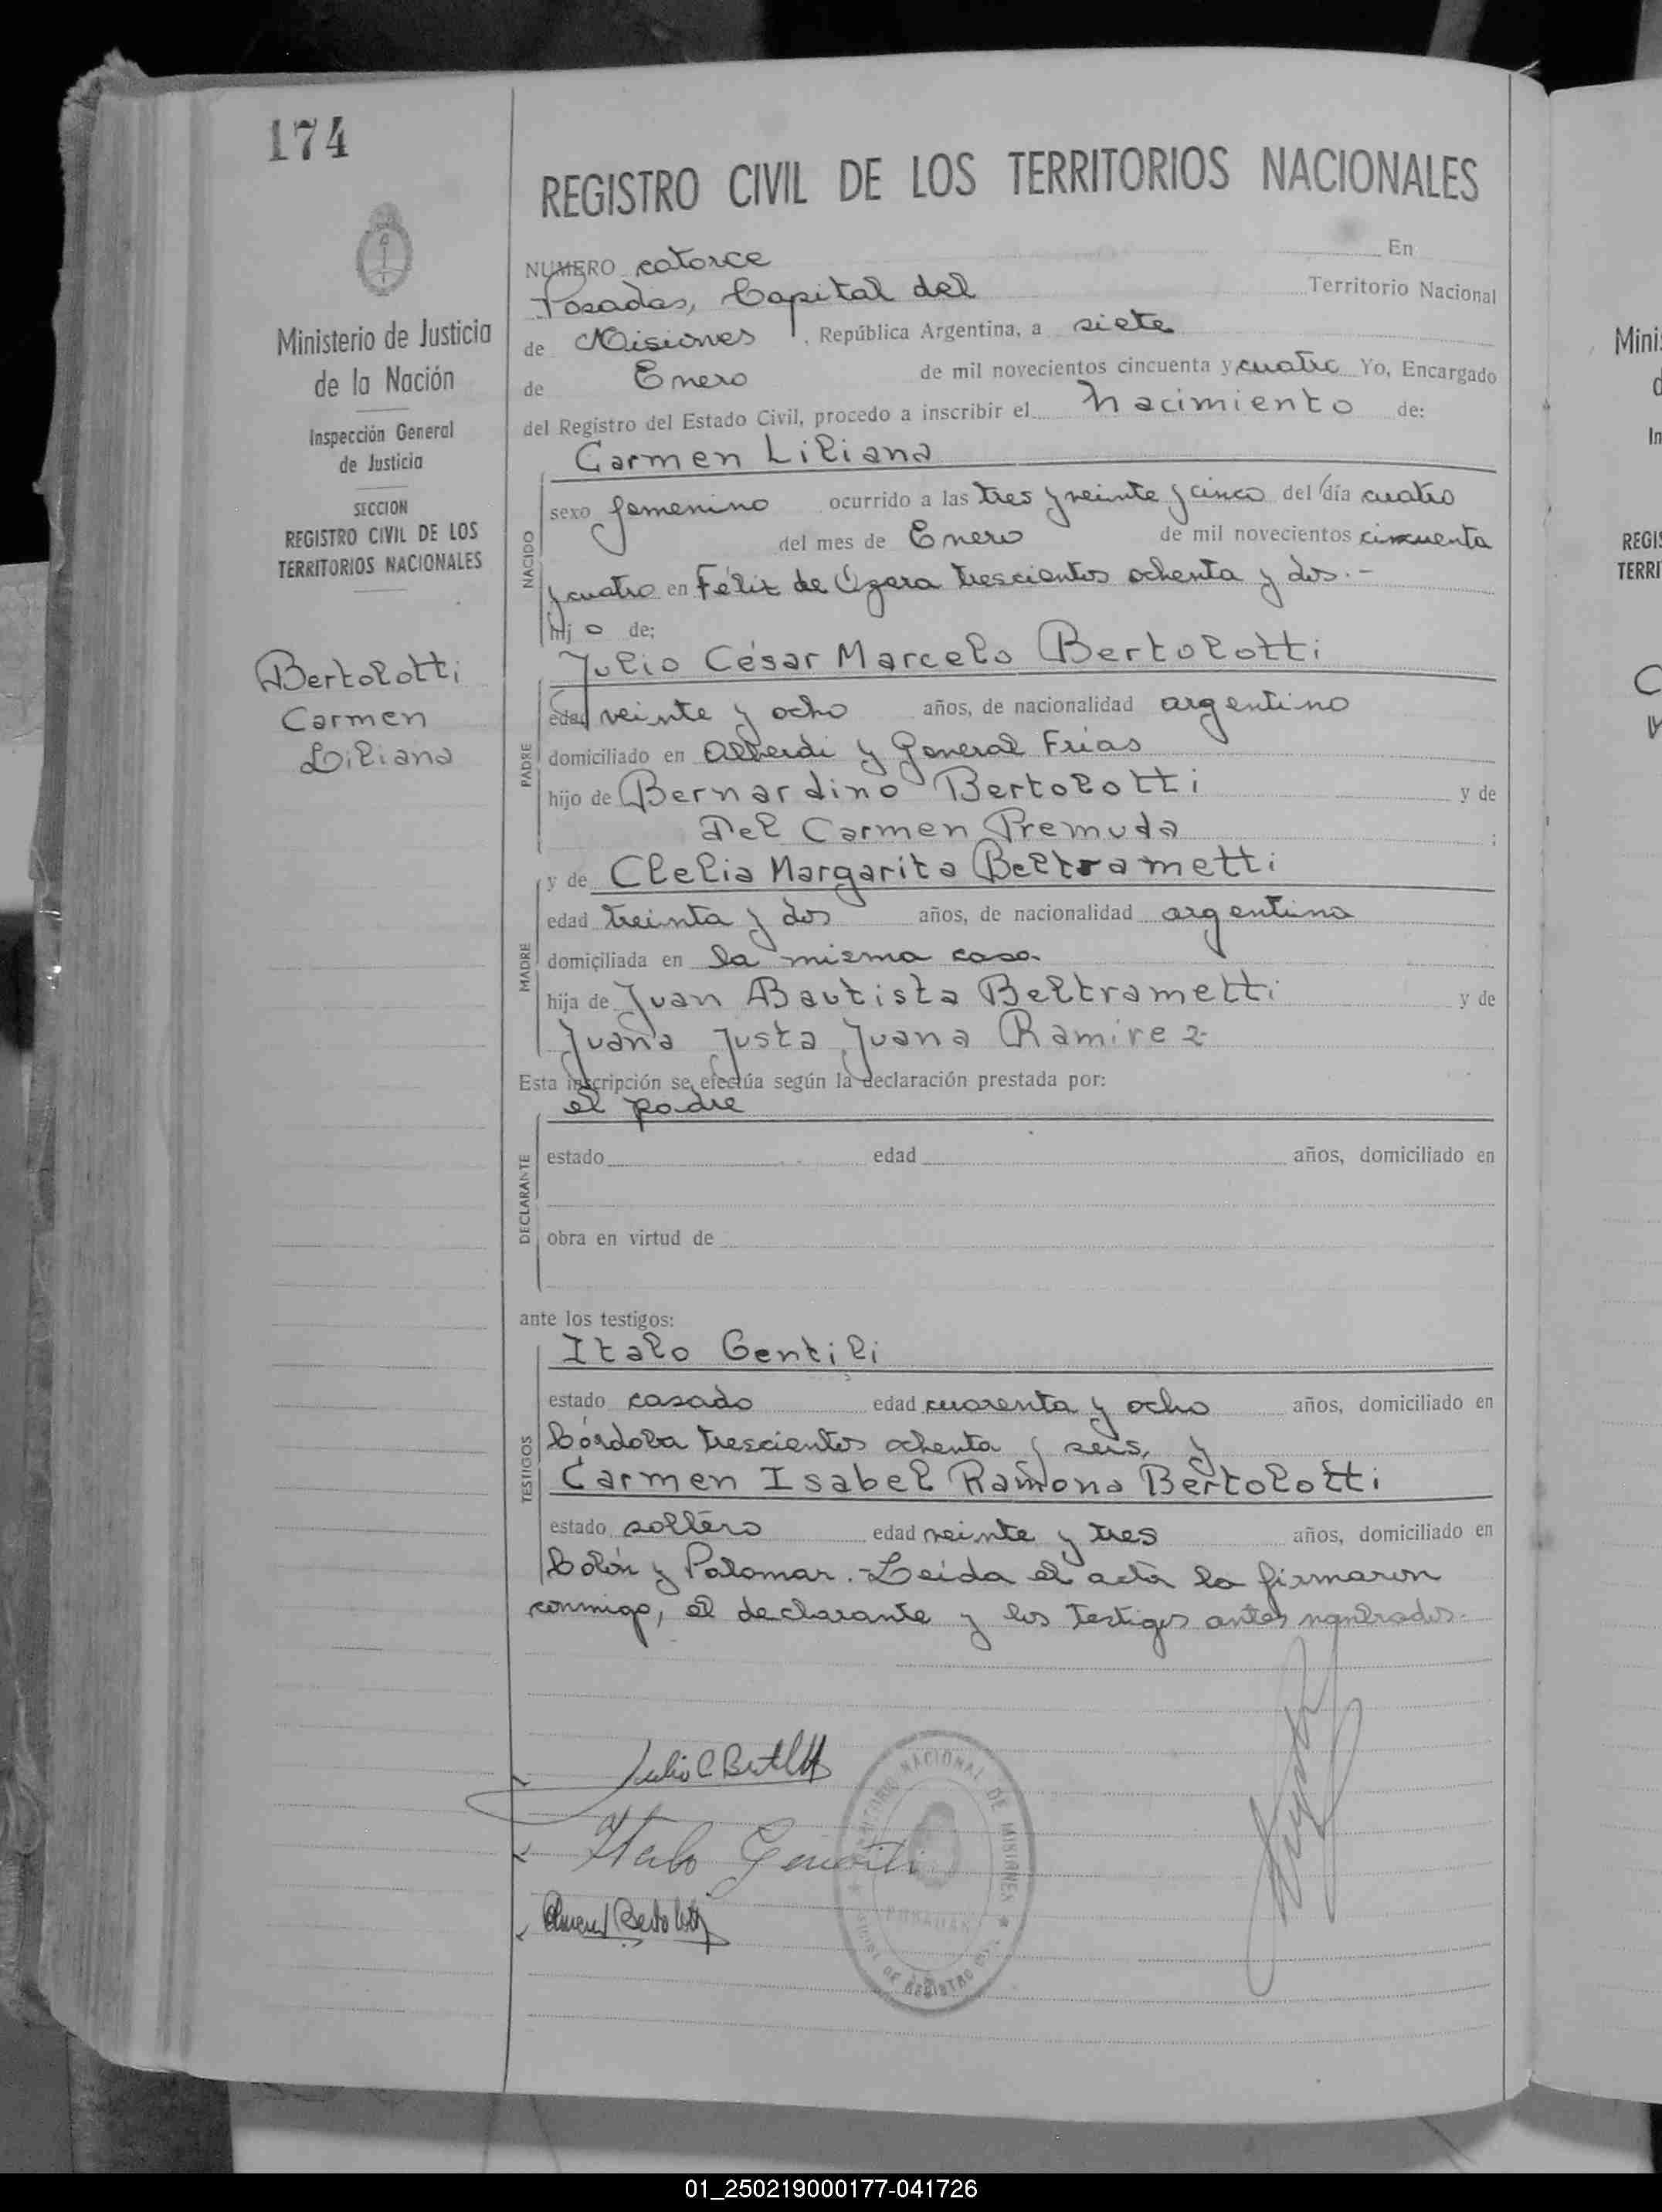 174
Ministerio de Justicia
de la Nación
Inspección General
de Justicia
SECCION
REGISTRO CIVIL DE LOS
TERRITORIOS NACIONALES
Bertolotti
Carmen
Liliana
REGISTRO CIVIL DE LOS TERRITORIOS NACIONALES
NUMERO catorce En
Posadas, Capital del Territorio Nacional
de Misiones, República Argentina, a siete
de Enero de mil novecientos cincuenta y cuatro Yo, Encargado
del Registro del Estado Civil, procedo a inscribir el nacimiento de:
Carmen Liliana
NACIDO
sexo femenino ocurrido a las tres y veinte y cinco del día cuatro
del mes de Enero de mil novecientos cincuenta
y cuatro en Félix de Azara trescientos ochenta y dos.-
hij o de;
Julio César Marcelo Bertolotti
PADRE
edad veinte y ocho años, de nacionalidad argentino
domiciliado en Alberdi y General Frías
hijo de Bernardino Bertolotti y de
Del Carmen Premuda ;
y de Clelia Margarita Beltrametti
MADRE
edad treinta y dos años, de nacionalidad argentina
domiciliada en la misma casa.
hija de Juan Bautista Beltrametti y de
Juana Justa Juana Ramirez
Esta inscripción se efectúa según la declaración prestada por:
el padre
DECLARANTE
estado edad años, domiciliado en
obra en virtud de
ante los testigos:
Italo Gentili
TESTIGOS
estado casado edad cuarenta y ocho años, domiciliado en
Córdoba trescientos ochenta y seis, y
Carmen Isabel Ramona Bertolotti
estado soltero edad veinte y tres años, domiciliado en
Colón y Palomar. Leída el acta la firmaron
conmigo, el declarante y los testigos antes nombrados.-
Julio C Bertolotti
Italo Gentili
Carmen I Bertolotti
TERRITORIO NACIONAL DE MISIONES
POSADAS
DE REGISTRO CIVIL
Mini
d
In
REGIS
TERRI
C
01_250219000177-041726